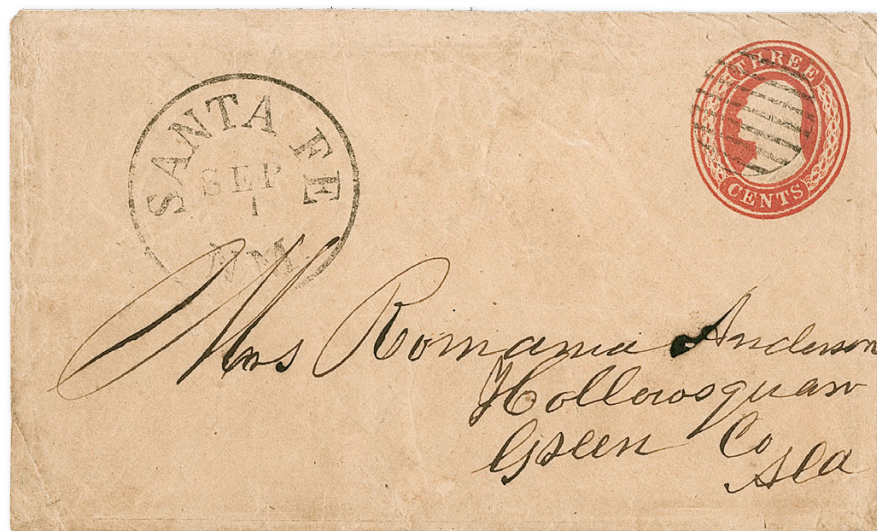 SANTA FE
SEP
1
N.M.
THREE
CENTS
Mrs Romania Anderson
Hollowsquaw
Green Co
Ala